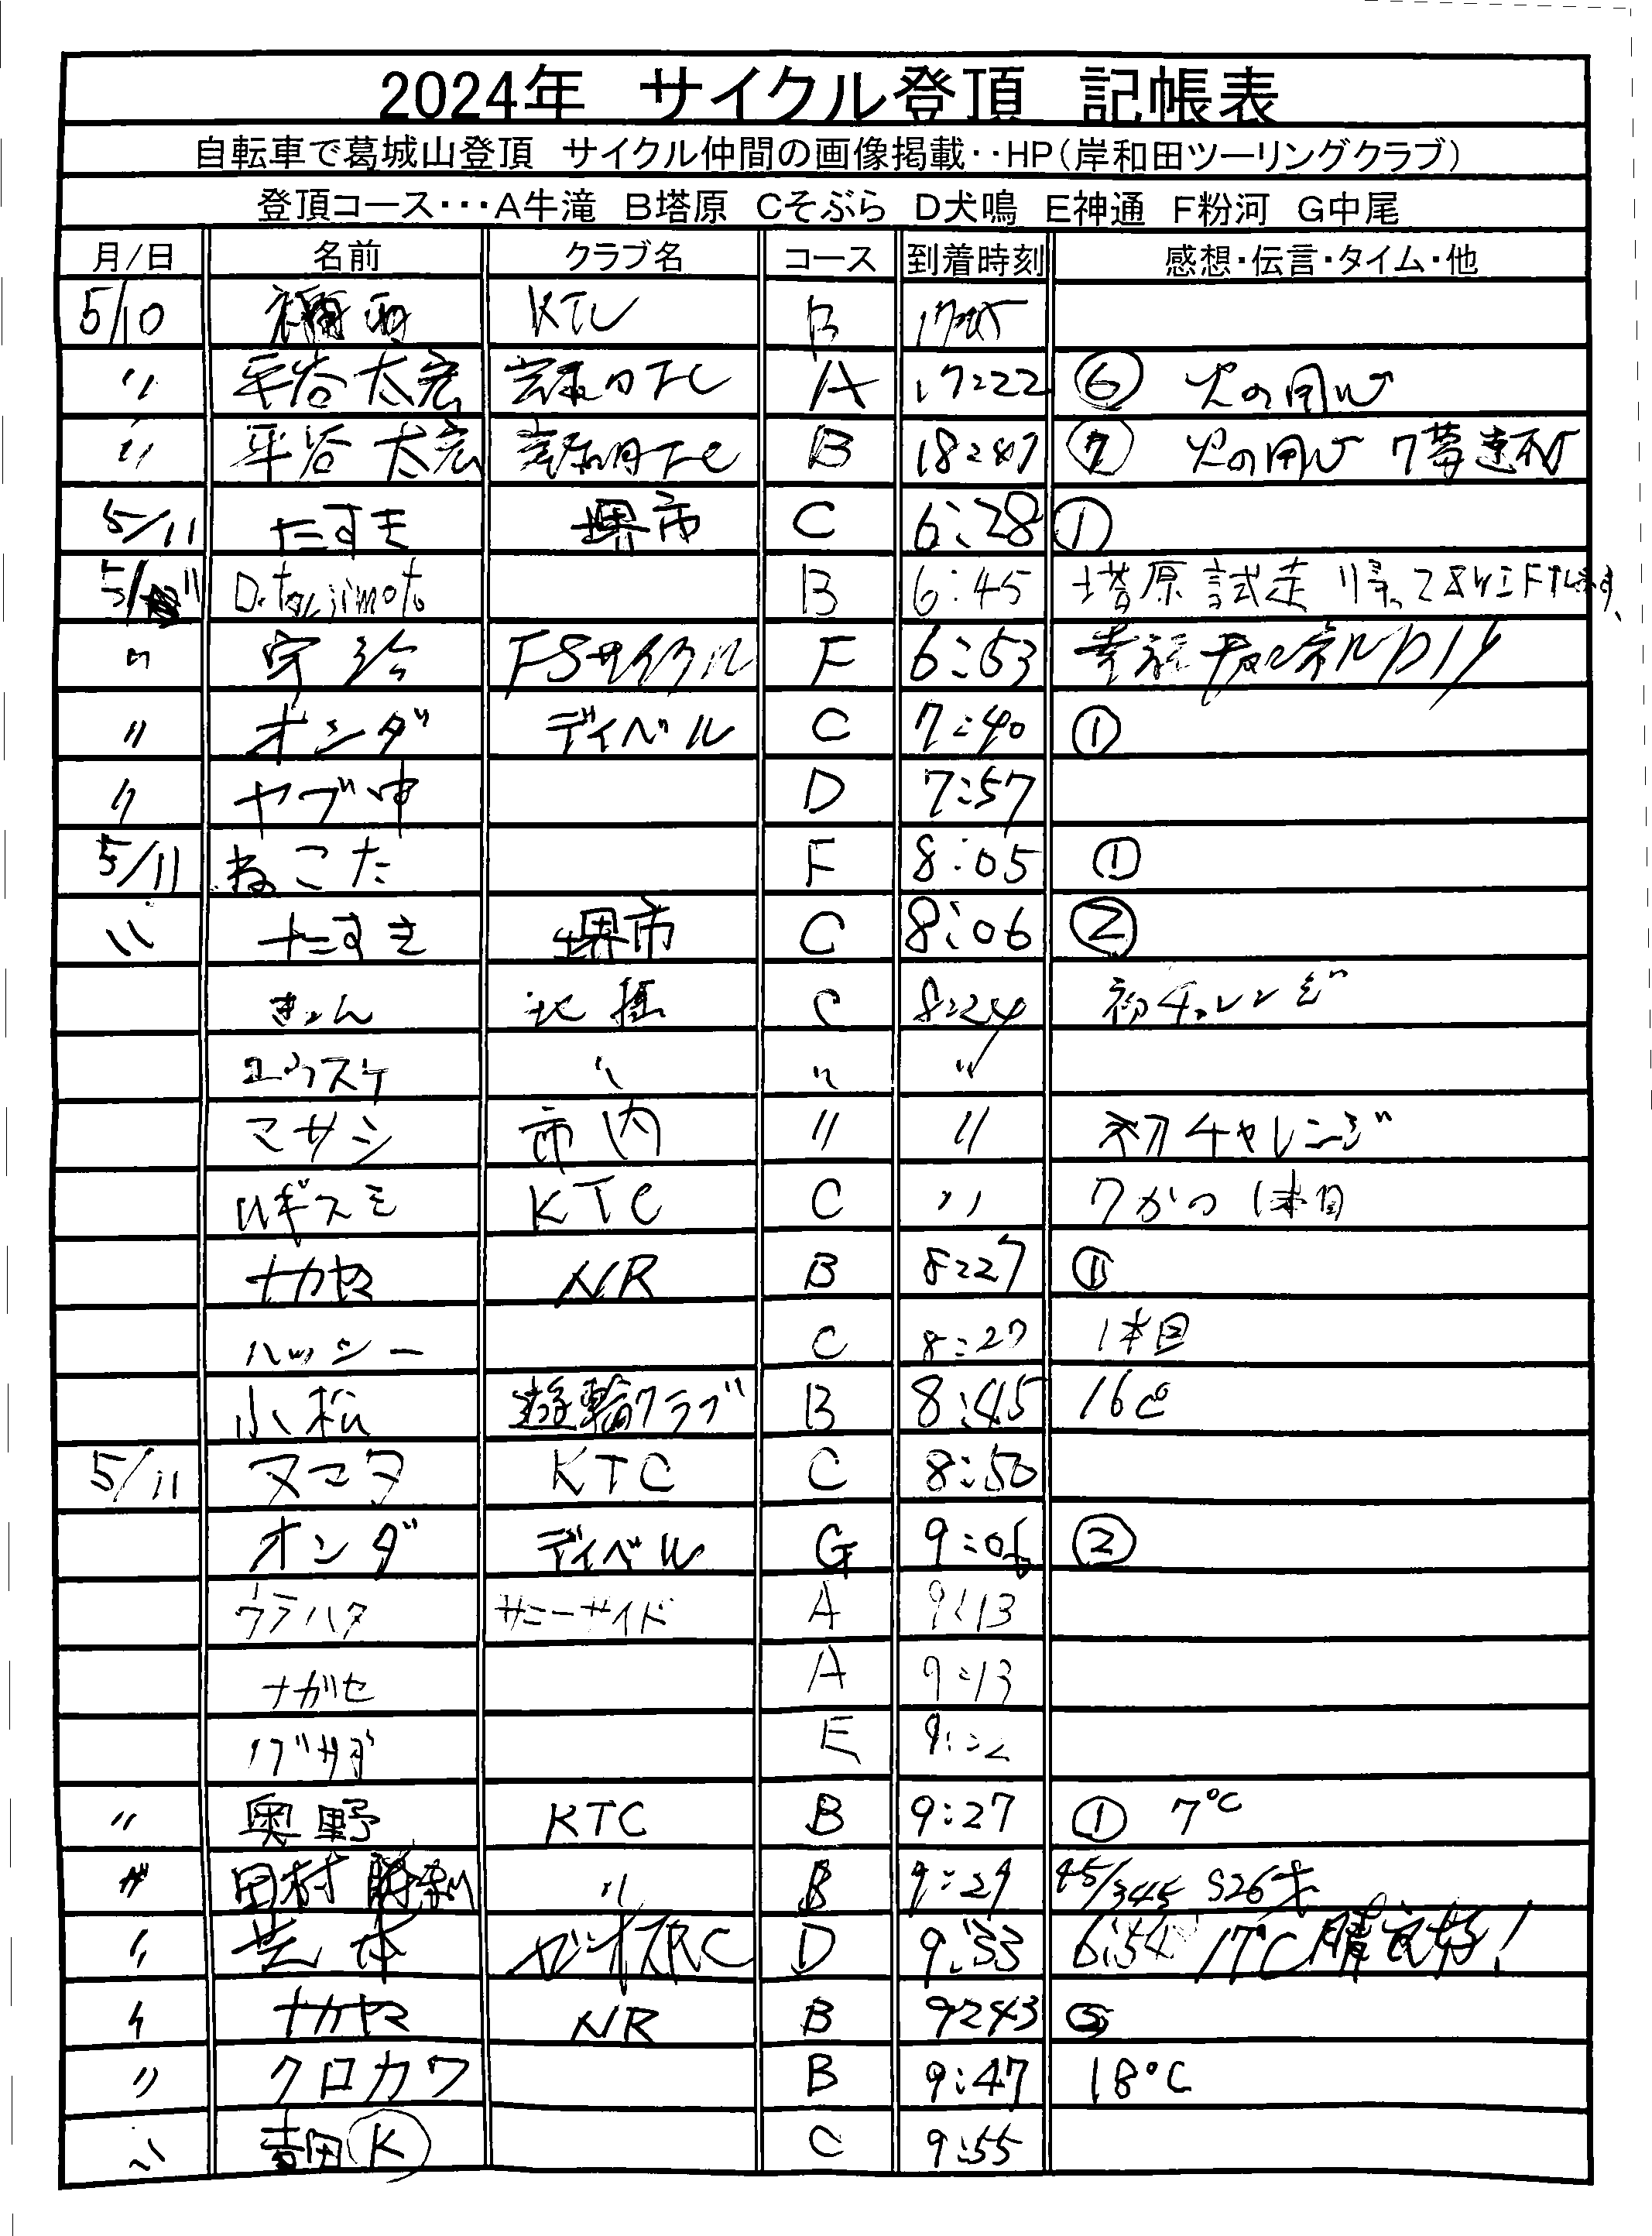 2024年 サイクル登頂 記帳表
自転車で葛城山登頂 サイクル仲間の画像掲載‥HP(岸和田ツーリングクラブ)
登頂コース･･･A牛滝 B塔原 Cそぶら D犬鳴 E神通 F粉河 G中尾
月/日 名前 クラブ名 コース 到着時刻 感想・伝言・タイム・他
5/10 KTC B
〃 平谷 太宏 岸和田TC A 17:22 ⑥ 火の用心
〃 平谷 太宏 岸和田TC B 18:47 ⑦ 火の用心
5/11 たすき 堺市 C 6:28 ①
5/11 D.tajimoto B 6:45 塔原試走
〃 守 FSサイクル F 6:53
〃 オンダ ディベル C 7:40 ①
〃 ヤブ中 D 7:57
5/11 ねこた F 8:05 ①
〃 たすき 堺市 C 8:06 ②
きょん 北摂 C 8:24 初チャレンジ
ユウスケ 〃 〃 〃
マサシ 市内 〃 〃 初チャレンジ
ギスミ KTC C 〃 1本目
ナカヤマ NR B 8:27 ①
ハッシー C 8:27 1本目
小松 遊輪クラブ B 8:45 16℃
5/11 ヌマタ KTC C 8:50
オンダ ディベル G 9:06 ②
ウラハタ サニーサイド A 9:13
ナガセ A 9:13
E
〃 奥野 KTC B 9:27 ① 7℃
〃 田村 〃 B 9:29 45/345 S26才
〃 芝本 D 9:33 6:54 17℃ 晴
〃 ナカヤマ NR B 9:43 ②
〃 クロカワ B 9:47 18℃
〃 吉田 K C 9:55